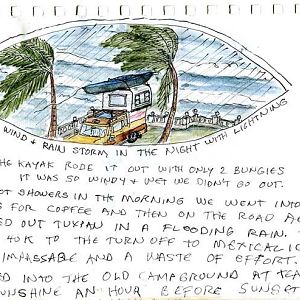 WIND + RAIN STORM IN THE NIGHT WITH LIGHTNING
HE KAYAK RODE IT OUT WITH ONLY 2 BUNGIES
IT WAS SO WINDY + WET WE DIDN'T GO OUT.
OT SHOWERS IN THE MORNING WE WENT INTO
FOR COFFEE AND THEN ON THE ROAD
ED OUT TUXPAN IN A FLOODING RAIN.
40K TO THE TURN OFF TO MEXICALI
IMPASSABLE AND A WASTE OF EFFORT.
ED INTO THE OLD CAMPGROUND AT
UNSHINE AN HOUR BEFORE SUNSET